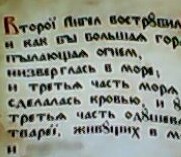 Второй Ангел вострѹбил
и как бы большая гор
пылающая огнем,
низверглась в море;
и третья часть моря
сделалась кровью, и ѹ
третья часть одѹшевл
тварей, живѹщих в м
и